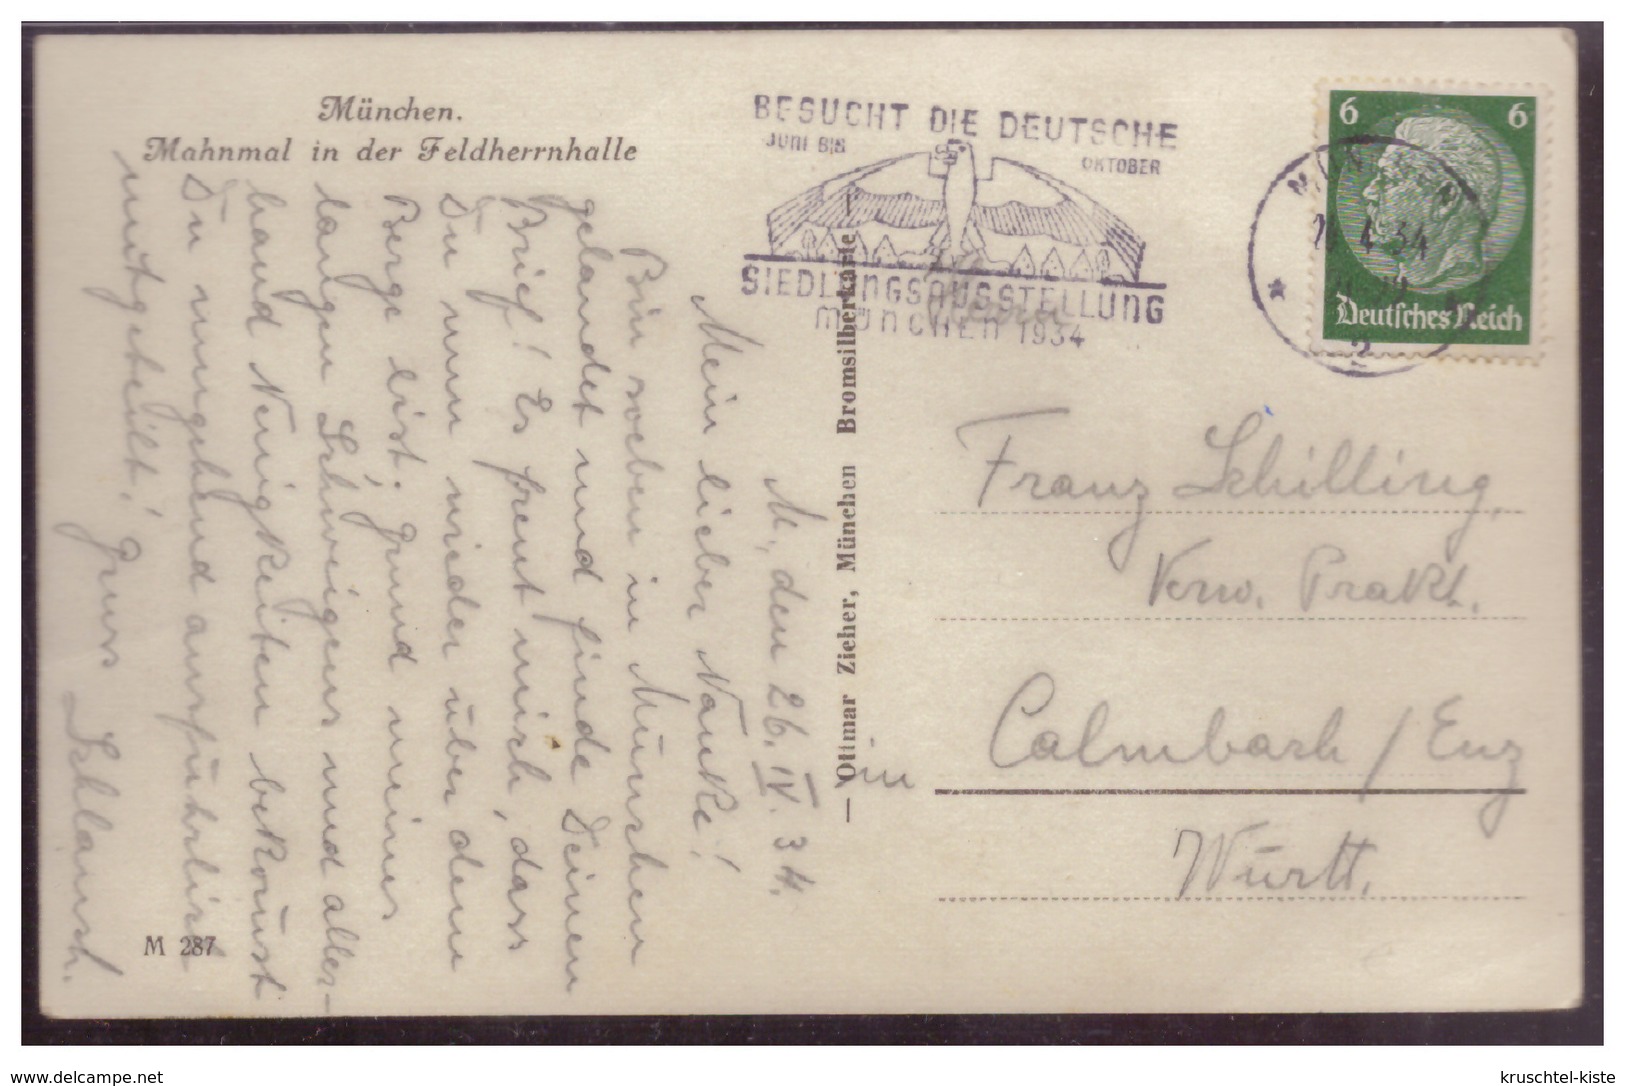 München.
Mahnmal in der Feldherrnhalle
BESUCHT DIE DEUTSCHE
JUNI BIS
OKTOBER
SIEDLUNGSAUSSTELLUNG
MÜNCHEN 1934
6 6
Deutsches Reich
4.34
2
M., den 26. IV. 34.
Mein lieber
Bin soeben in München
gelandet und finde Deinen
Brief! Es freut mich, dass
Du nun wieder über dem
Berge bist. Grund meines
langen Schweigens und aller-
hand Neuigkeiten bekommst
Du umgehend ausführlich
mitgeteilt! Gruss
M 287
— Ottmar Zieher, München Bromsilberkarte —
Franz Schilling,
Verw. Prakt.
in
Calmbach / Enz
Württ.
www.delcampe.net
kruschtel-kiste